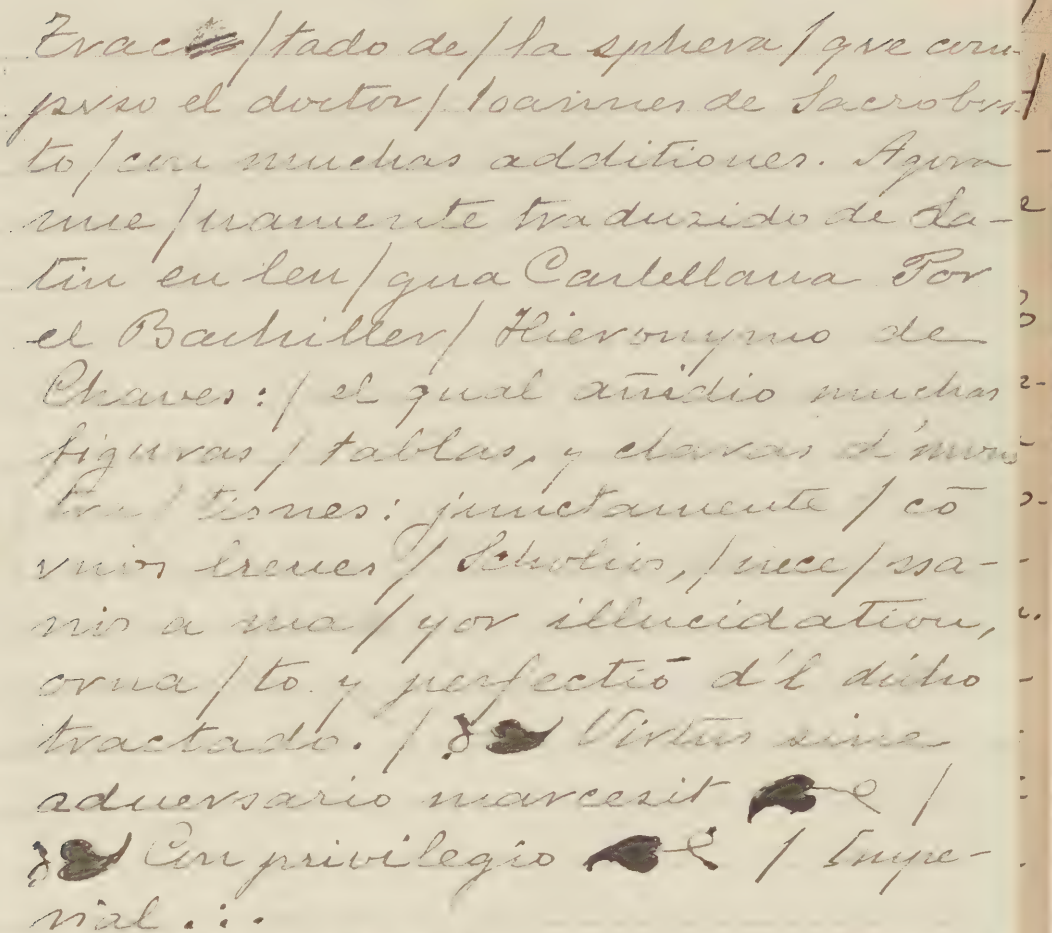 Trac/tado de/la sphera/que com-
puso el doctor/Ioannes de Sacrobus-
to/con muchas additiones. Agora
nue/uamente traduzido de La-
tin en len/gua Castellana Por
el Bachiller/Hieronymo de
Chaves:/el qual añidio muchas
figuras/tablas, y claras d'mons
tra/tiones: junctamente/cō
vnos breues/Scholios,/nece/ssa-
rios a ma/yor illucidation,
orna/to y perfectiō d'l dicho
tractado./❧ Virtus sine
aduersario marcesit ☙/
❧ Con privilegio ☙/Impe-
rial.:.